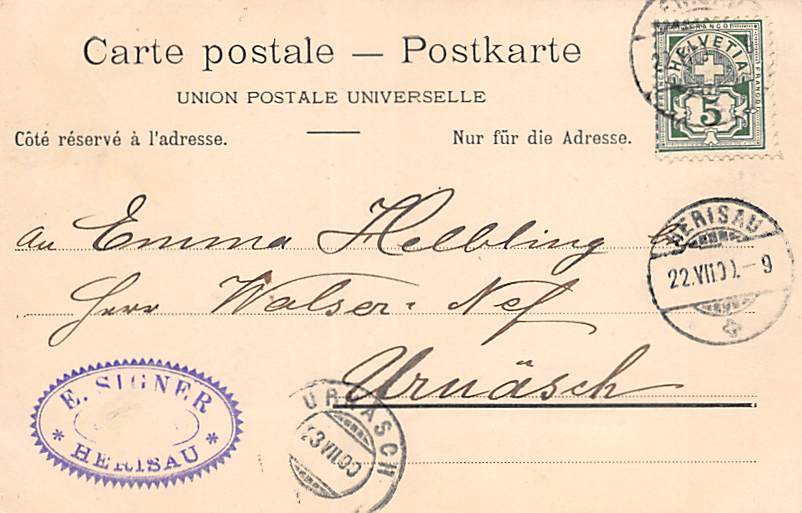 Carte postale — Postkarte
UNION POSTALE UNIVERSELLE
Côté réservé à l'adresse.
Nur für die Adresse.
FRANCO
HELVETIA
FRANCO
5
HERISAU
22.VII.00.-9
An Emma Helbling bei
Herr Walser-Nef
Urnäsch
E. SIGNER
* HERISAU *
URNÄSCH
23 VII 00